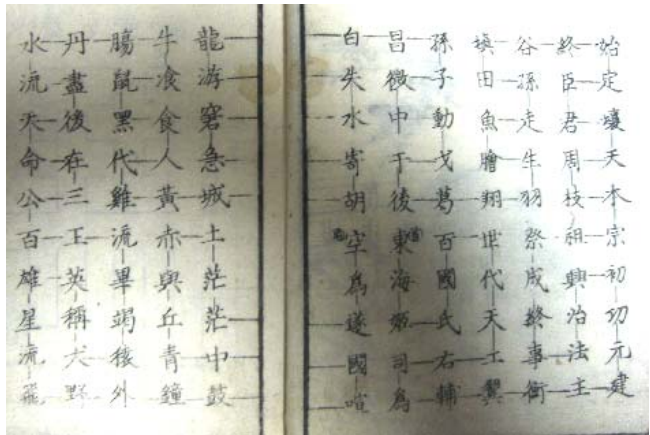 始定壤天本宗初功元建
終臣君周枝祖興治法主
谷孫走生羽祭成終事衡
塡田魚膾翔世代天工翼
孫子動戈葛百國氏右輔
昌微中干後東海姬司爲
白失水寄胡空爲遂國喧
龍游窘急城土茫茫中鼓
牛飡食人黃赤與丘青鐘
膓鼠黑代雞流畢竭猿外
丹盡後在三王英稱犬野
水流天命公百雄星流飛